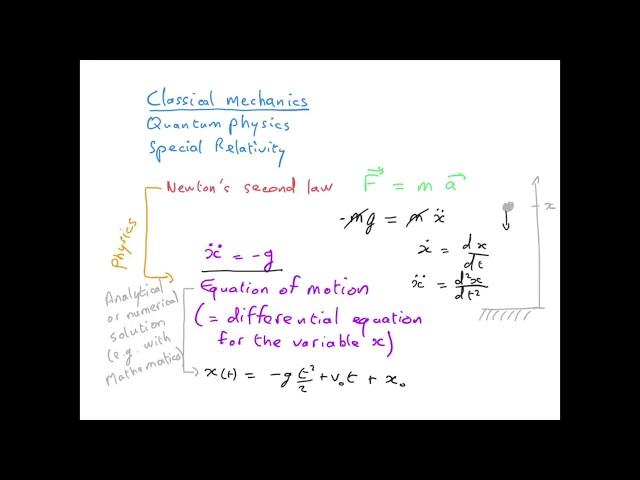 Classical mechanics
Quantum physics
Special Relativity
Newton's second law F⃗ = m a⃗
-mg = m ẍ
x
ẋ = dx/dt
Physics
ẍ = -g
ẍ = d²x/dt²
Equation of motion
(= differential equation
for the variable x)
Analytical
or numerical
solution
(e.g. with
Mathematica)
x(t) = -g t²/2 + v₀t + x₀